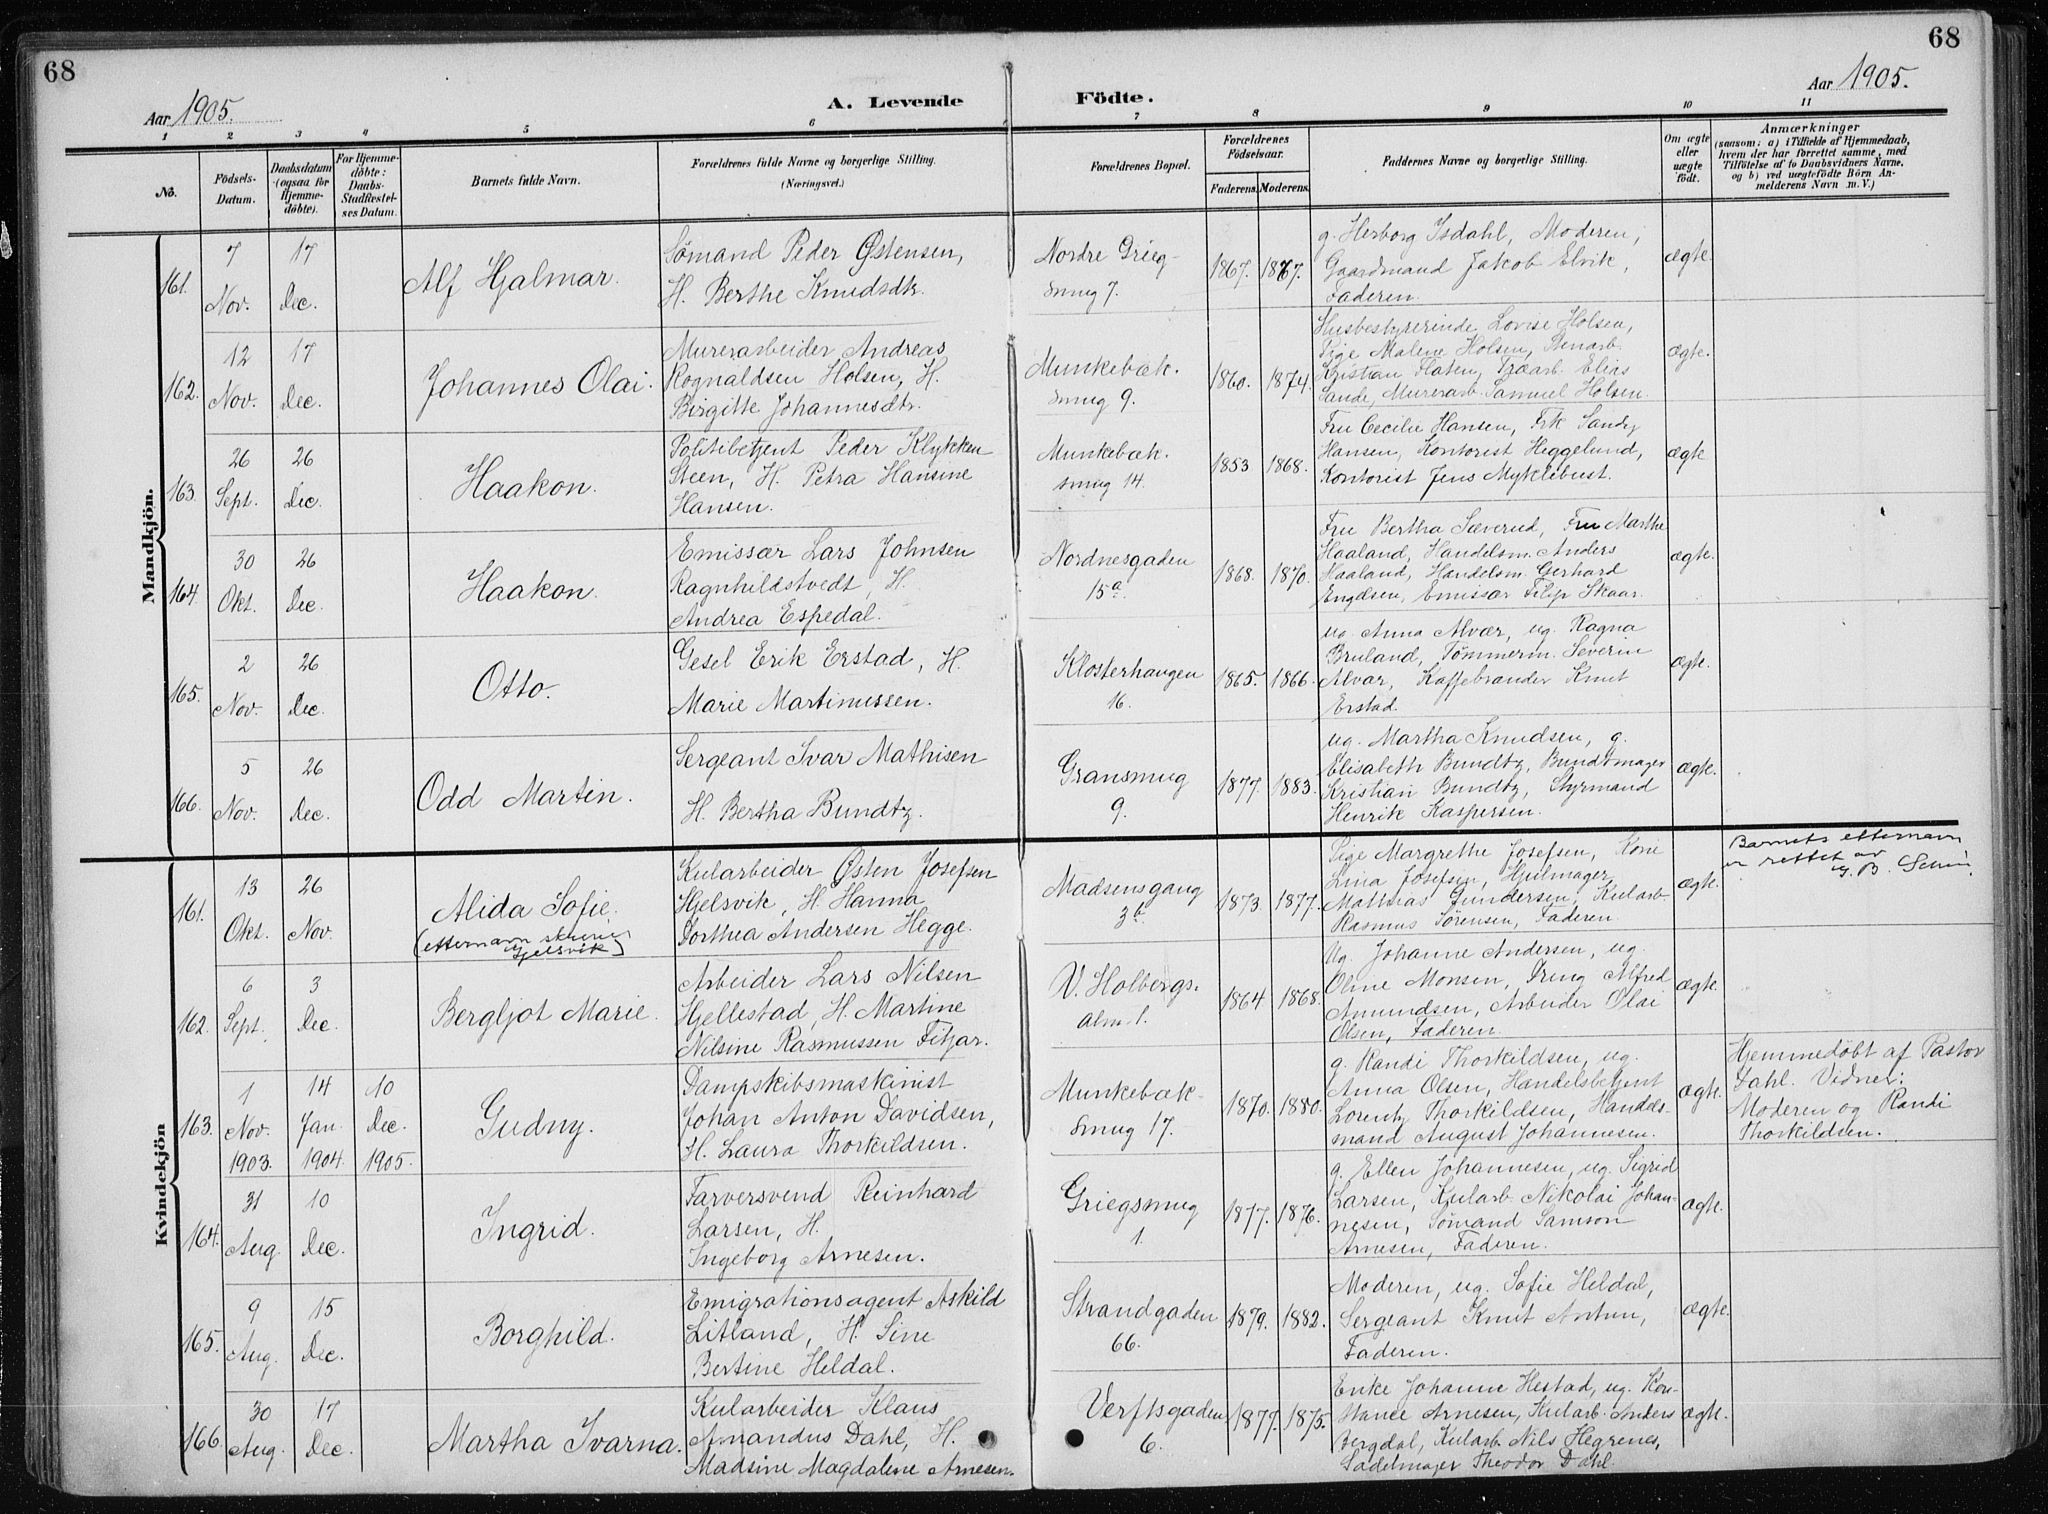 68
68
Aar 1905.
A. Levende Födte.
Aar 1905.
1 2 3 4 5 6 7 8 9 10 11
No.
Födsels-Datum.
Daabsdatum (ogsaa for Hjemmedöbte).
For Hjemmedöbte: Daabs-Stadfæstelses Datum.
Barnets fulde Navn.
Forældrenes fulde Navne og borgerlige Stilling.
(Næringsvei.)
Forældrenes Bopæl.
Forældrenes Födselsaar.
Faderens. Moderens.
Faddernes Navne og borgerlige Stilling.
Om ægte eller uægte födt.
Anmærkninger
(saasom: a) i Tilfælde af Hjemmedaab, hvem der har forrettet samme, med Tilföielse af to Daabsvidners Navne, og b) ved uægtefödte Börn Anmelderens Navn m. V.)
Mandkjön.
161. 7 Nov. 17 Dec.
Alf Hjalmar.
Sømand Peder Østensen,
H. Berthe Knudsdtr.
Nordre Grieg-
smug 7.
1867. 1867.
g. Herborg Isdahl, Moderen,
Gaardmand Jakob Elvik,
Faderen.
ægte.
162. 12 Nov. 17 Dec.
Johannes Olai.
Murerarbeider Andreas
Rognaldsen Holsen, H.
Birgitte Johannesdtr.
Munkebæk.
smug 9.
1860. 1874.
Husbestyrerinde Lovise Holsen,
Pige Malene Holsen, Stenarb.
Kristian Flaten, Træarb. Elias
Sande, Murerarb. Samuel Holsen.
ægte.
163. 26 Sept. 26 Dec.
Haakon.
Politibetjent Peder Klykken
Steen, H. Petra Hansine
Hansen.
Munkebæk.
smug 14.
1853 1868.
Fru Cecilie Hansen, Frk Sandy
Hansen, Kontorist Heggelund,
Kontorist Jens Myklebust.
ægte
164. 30 Okt. 26 Dec.
Haakon.
Emissær Lars Johnsen
Ragnhildstvedt, H.
Andrea Espedal.
Nordnesgaden
15a.
1868. 1870.
Fru Bertha Sæverud, Fru Marthe
Haaland, Handelsm. Anders
Haaland, Handelsm. Gerhard
Engelsen, Emissær Filip Skaar.
ægte.
165. 2 Nov. 26 Dec.
Otto.
Gesel Erik Erstad, H.
Marie Martinussen.
Klosterhaugen
16.
1865. 1866.
ug. Anna Alvær, ug. Ragna
Bruland, Tømmerm. Severin
Alvær, Kaffebrænder Knut
Erstad.
ægte.
166. 5 Nov. 26 Dec.
Odd Martin.
Sergeant Ivar Mathisen
H. Bertha Bundtz.
Gransmug
9.
1877. 1883.
ug. Martha Knudsen, g.
Elisabeth Bundtz, Bundtmager
Kristian Bundtz, Styrmand
Henrik Kaspersen.
ægte.
Kvindekjön
161. 13 Okt. 26 Nov.
Alida Sofie.
(etternavn skrives
Hjelsvik)
Kularbeider Østen Josefsen
Hjelsvik, H. Hanna
Dorthea Andersen Hegge.
Madsensgang
3b.
1873. 1877.
Pige Margrethe Josefsen, Kone
Lina Josefsen, Hjulmager
Mathias Gundersen, Kularb.
Rasmus Sørensen, Faderen.
ægte.
Barnets etternavn
er rettet av
162. 6 Sept. 3 Dec.
Bergljot Marie.
Arbeider Lars Nilsen
Hjellestad, H. Martine
Nilsine Rasmussen Fitjar.
V. Holbergs.
alm. 1.
1864 1868.
Ug. Johanne Andersen, ug.
Oline Monsen, Dreng Alfred
Amundsen, Arbeider Olai
Olsen, Faderen.
ægte.
163. 1 Nov. 1903. 14 Jan. 1904. 10 Dec. 1905.
Gudny.
Dampskibsmaskinist
Johan Anton Davidsen,
H. Laura Thorkildsen.
Munkebæk-
smug 17.
1870. 1880.
g. Randi Thorkildsen, ug.
Anna Olsen, Handelsbetjent
Lorentz Thorkildsen, Handels-
mand August Johannesen.
ægte.
Hjemmedöbt af Pastor
Dahl. Vidner:
Moderen og Randi
Thorkildsen.
164. 31 Aug. 10 Dec.
Ingrid.
Farversvend Reinhard
Larsen, H.
Ingeborg Arnesen.
Griegsmug
1.
1877. 1876.
g. Ellen Johannesen, ug. Sigrid
Larsen, Kularb. Nikolai Johan-
nesen, Sømand Samson
Arnesen, Faderen.
ægte.
165. 9 Aug. 15 Dec.
Borghild.
Emigrationsagent Askild
Litland, H. Sine
Bertine Heldal.
Strandgaden
66.
1879. 1882.
Moderen, ug. Sofie Heldal,
Sergeant Knut Antun,
Faderen.
ægte.
166. 30 Aug. 17 Dec.
Martha Ivarna.
Kularbeider Klaus
Amandus Dahl, H.
Madsine Magdalene Arnesen.
Verftsgaden
6.
1877. 1875.
Enke Johanne Hestad, ug. Kon-
stance Arnesen, Kularb. Anders
Bergdal, Kularb. Nils Hegrenes,
Sadelmager Theodor Dahl.
ægte.